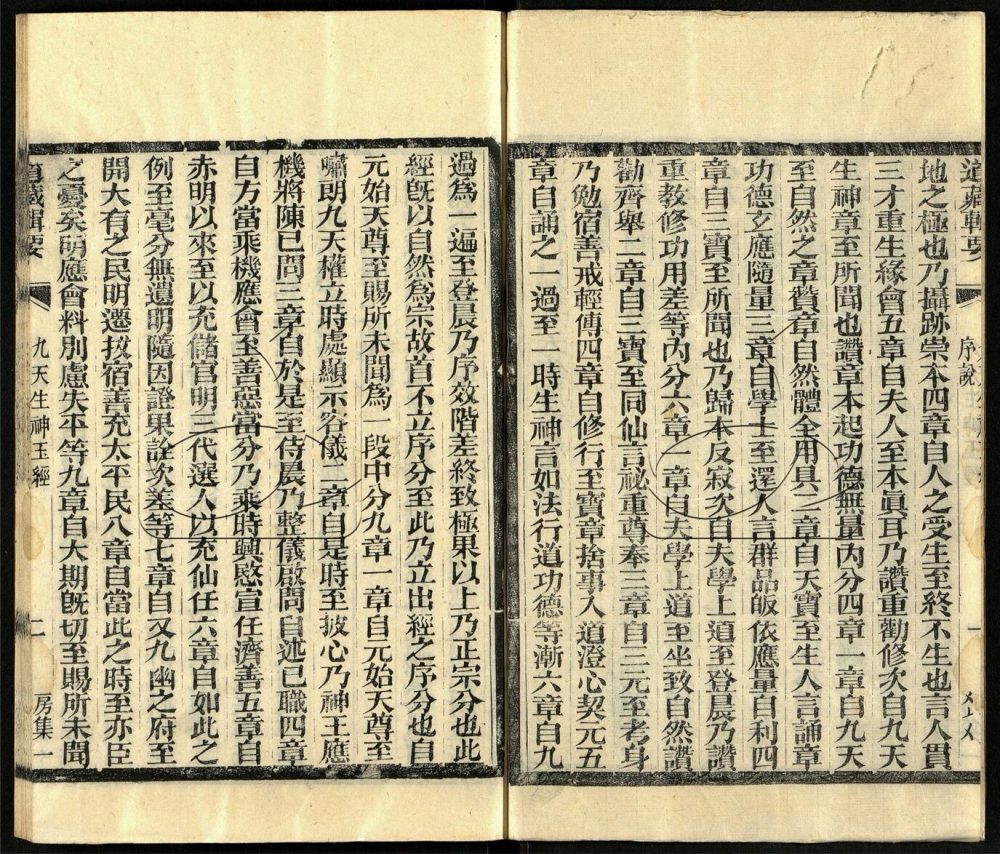 道藏輯要 序說 一
地之極也乃攝跡崇本四章自人之受生至終不生也言人貫
三才重生緣會五章自夫人至本眞耳乃讚重勸修次自九天
生神章至所聞也讚章本起功德無量內分四章一章自九天
至自然之章贊章自然體全用具二章自天寶至生人言誦章
功德玄應隨量三章自學士至還人言群品皈依應量自利四
章自三寶至所聞也乃歸本反寂次自夫學上道至登晨乃讚
重教修功用差等內分六章一章自夫學上道至坐致自然讚
勸齊舉二章自三寶至同仙言祕重尊奉三章自三元至考身
乃勉宿善戒輕傳四章自修行至寶章捨事入道澄心契元五
章自誦之一過至一時生神言如法行道功德等漸六章自九
過爲一遍至登晨乃序效階差終致極果以上乃正宗分也此
經旣以自然爲宗故首不立序分至此乃立出經之序分也自
元始天尊至賜所未聞爲一段中分九章一章自元始天尊至
嘯朗九天權立時處顯示容儀二章自是時至披心乃神王應
機將陳已問三章自於是至侍晨乃整儀啟問自述已職四章
自方當乘機應會至善惡當分乃乘時興愍宣任濟善五章自
赤明以來至以充儲官明三代選人以充仙任六章自如此之
例至毫分無遺明隨因證果詮次差等七章自又九幽之府至
開大有之民明遷拔宿善充太平民八章自當此之時至亦臣
之憂矣明應會料別慮失平等九章自大期旣切至賜所未聞
道藏輯要 九天生神玉經 二 房集一